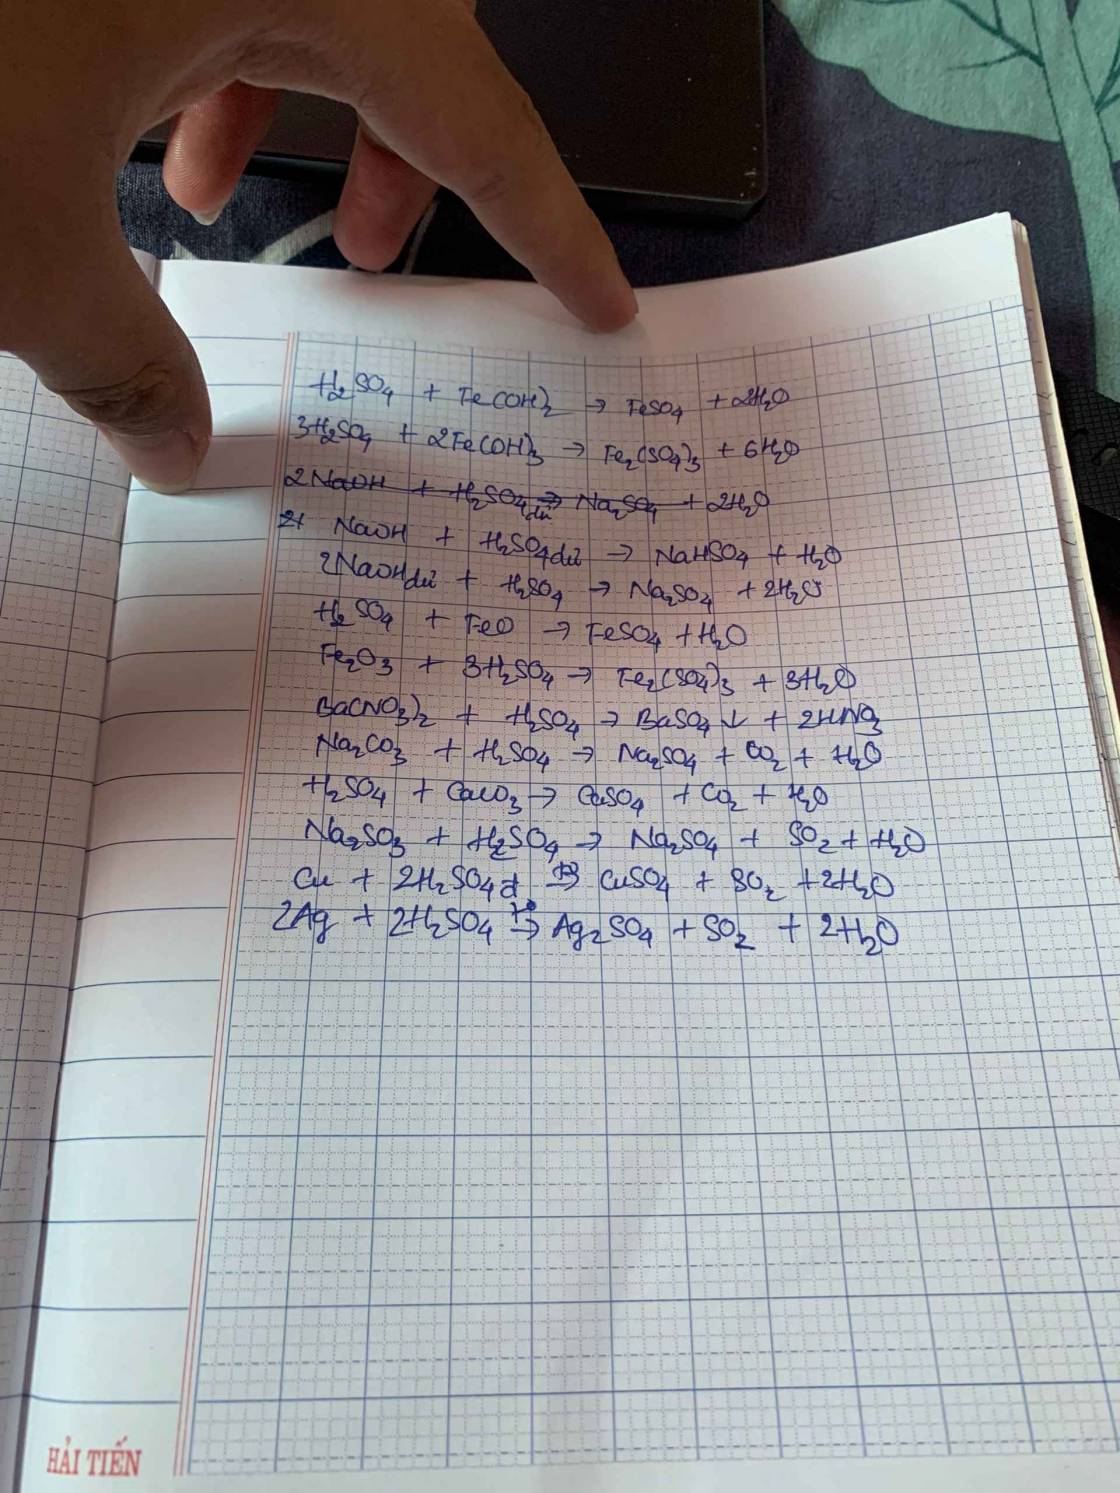 H₂SO₄ + Fe(OH)₂ → FeSO₄ + 2H₂O
3H₂SO₄ + 2Fe(OH)₃ → Fe₂(SO₄)₃ + 6H₂O
2NaOH + H₂SO₄ dư → Na₂SO₄ + 2H₂O
NaOH + H₂SO₄ dư → NaHSO₄ + H₂O
2NaOH dư + H₂SO₄ → Na₂SO₄ + 2H₂O
H₂SO₄ + FeO → FeSO₄ + H₂O
Fe₂O₃ + 3H₂SO₄ → Fe₂(SO₄)₃ + 3H₂O
Ba(NO₃)₂ + H₂SO₄ → BaSO₄ ↓ + 2HNO₃
Na₂CO₃ + H₂SO₄ → Na₂SO₄ + CO₂ + H₂O
H₂SO₄ + CaCO₃ → CaSO₄ + CO₂ + H₂O
Na₂SO₃ + H₂SO₄ → Na₂SO₄ + SO₂ + H₂O
Cu + 2H₂SO₄ đ → CuSO₄ + SO₂ + 2H₂O
2Ag + 2H₂SO₄ t° → Ag₂SO₄ + SO₂ + 2H₂O
HẢI TIẾN